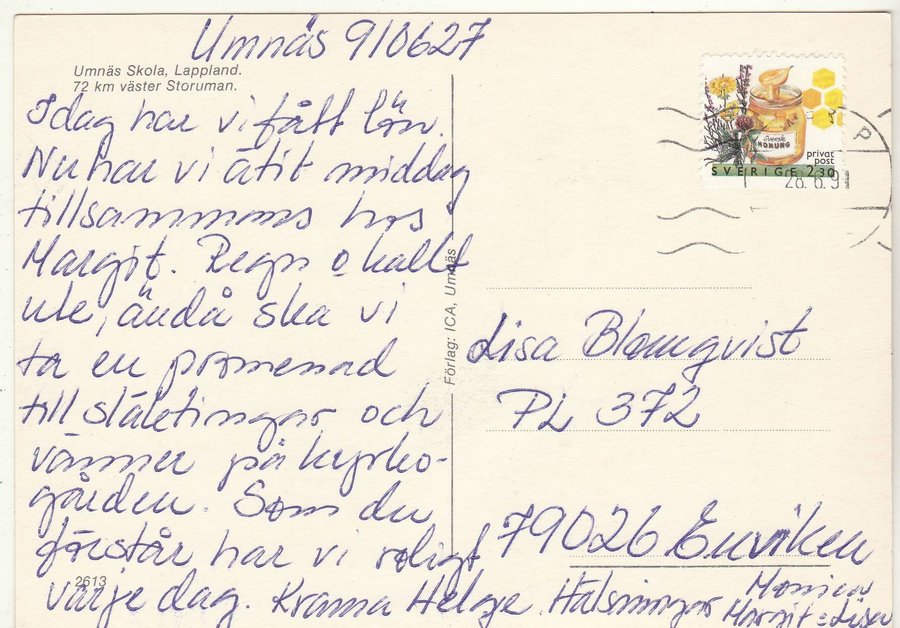 Umnäs 910627
Umnäs Skola, Lappland.
72 km väster Storuman.
Idag har vi fått lön.
Nu har vi ätit middag
tillsammans hos
Margit. Regn o kallt
ute, ändå ska vi
ta en promenad
till släktingar och
vänner på kyrko-
gården. Som du
förstår har vi roligt
varje dag. Krama Helge. Hälsningar Monica
Margit o Lisa
2613
Förlag: ICA, Umnäs
Svensk
HONUNG
privat
post
SVERIGE 2.30
28.6.91
Lisa Blomqvist
PL 372
79026 Enviken